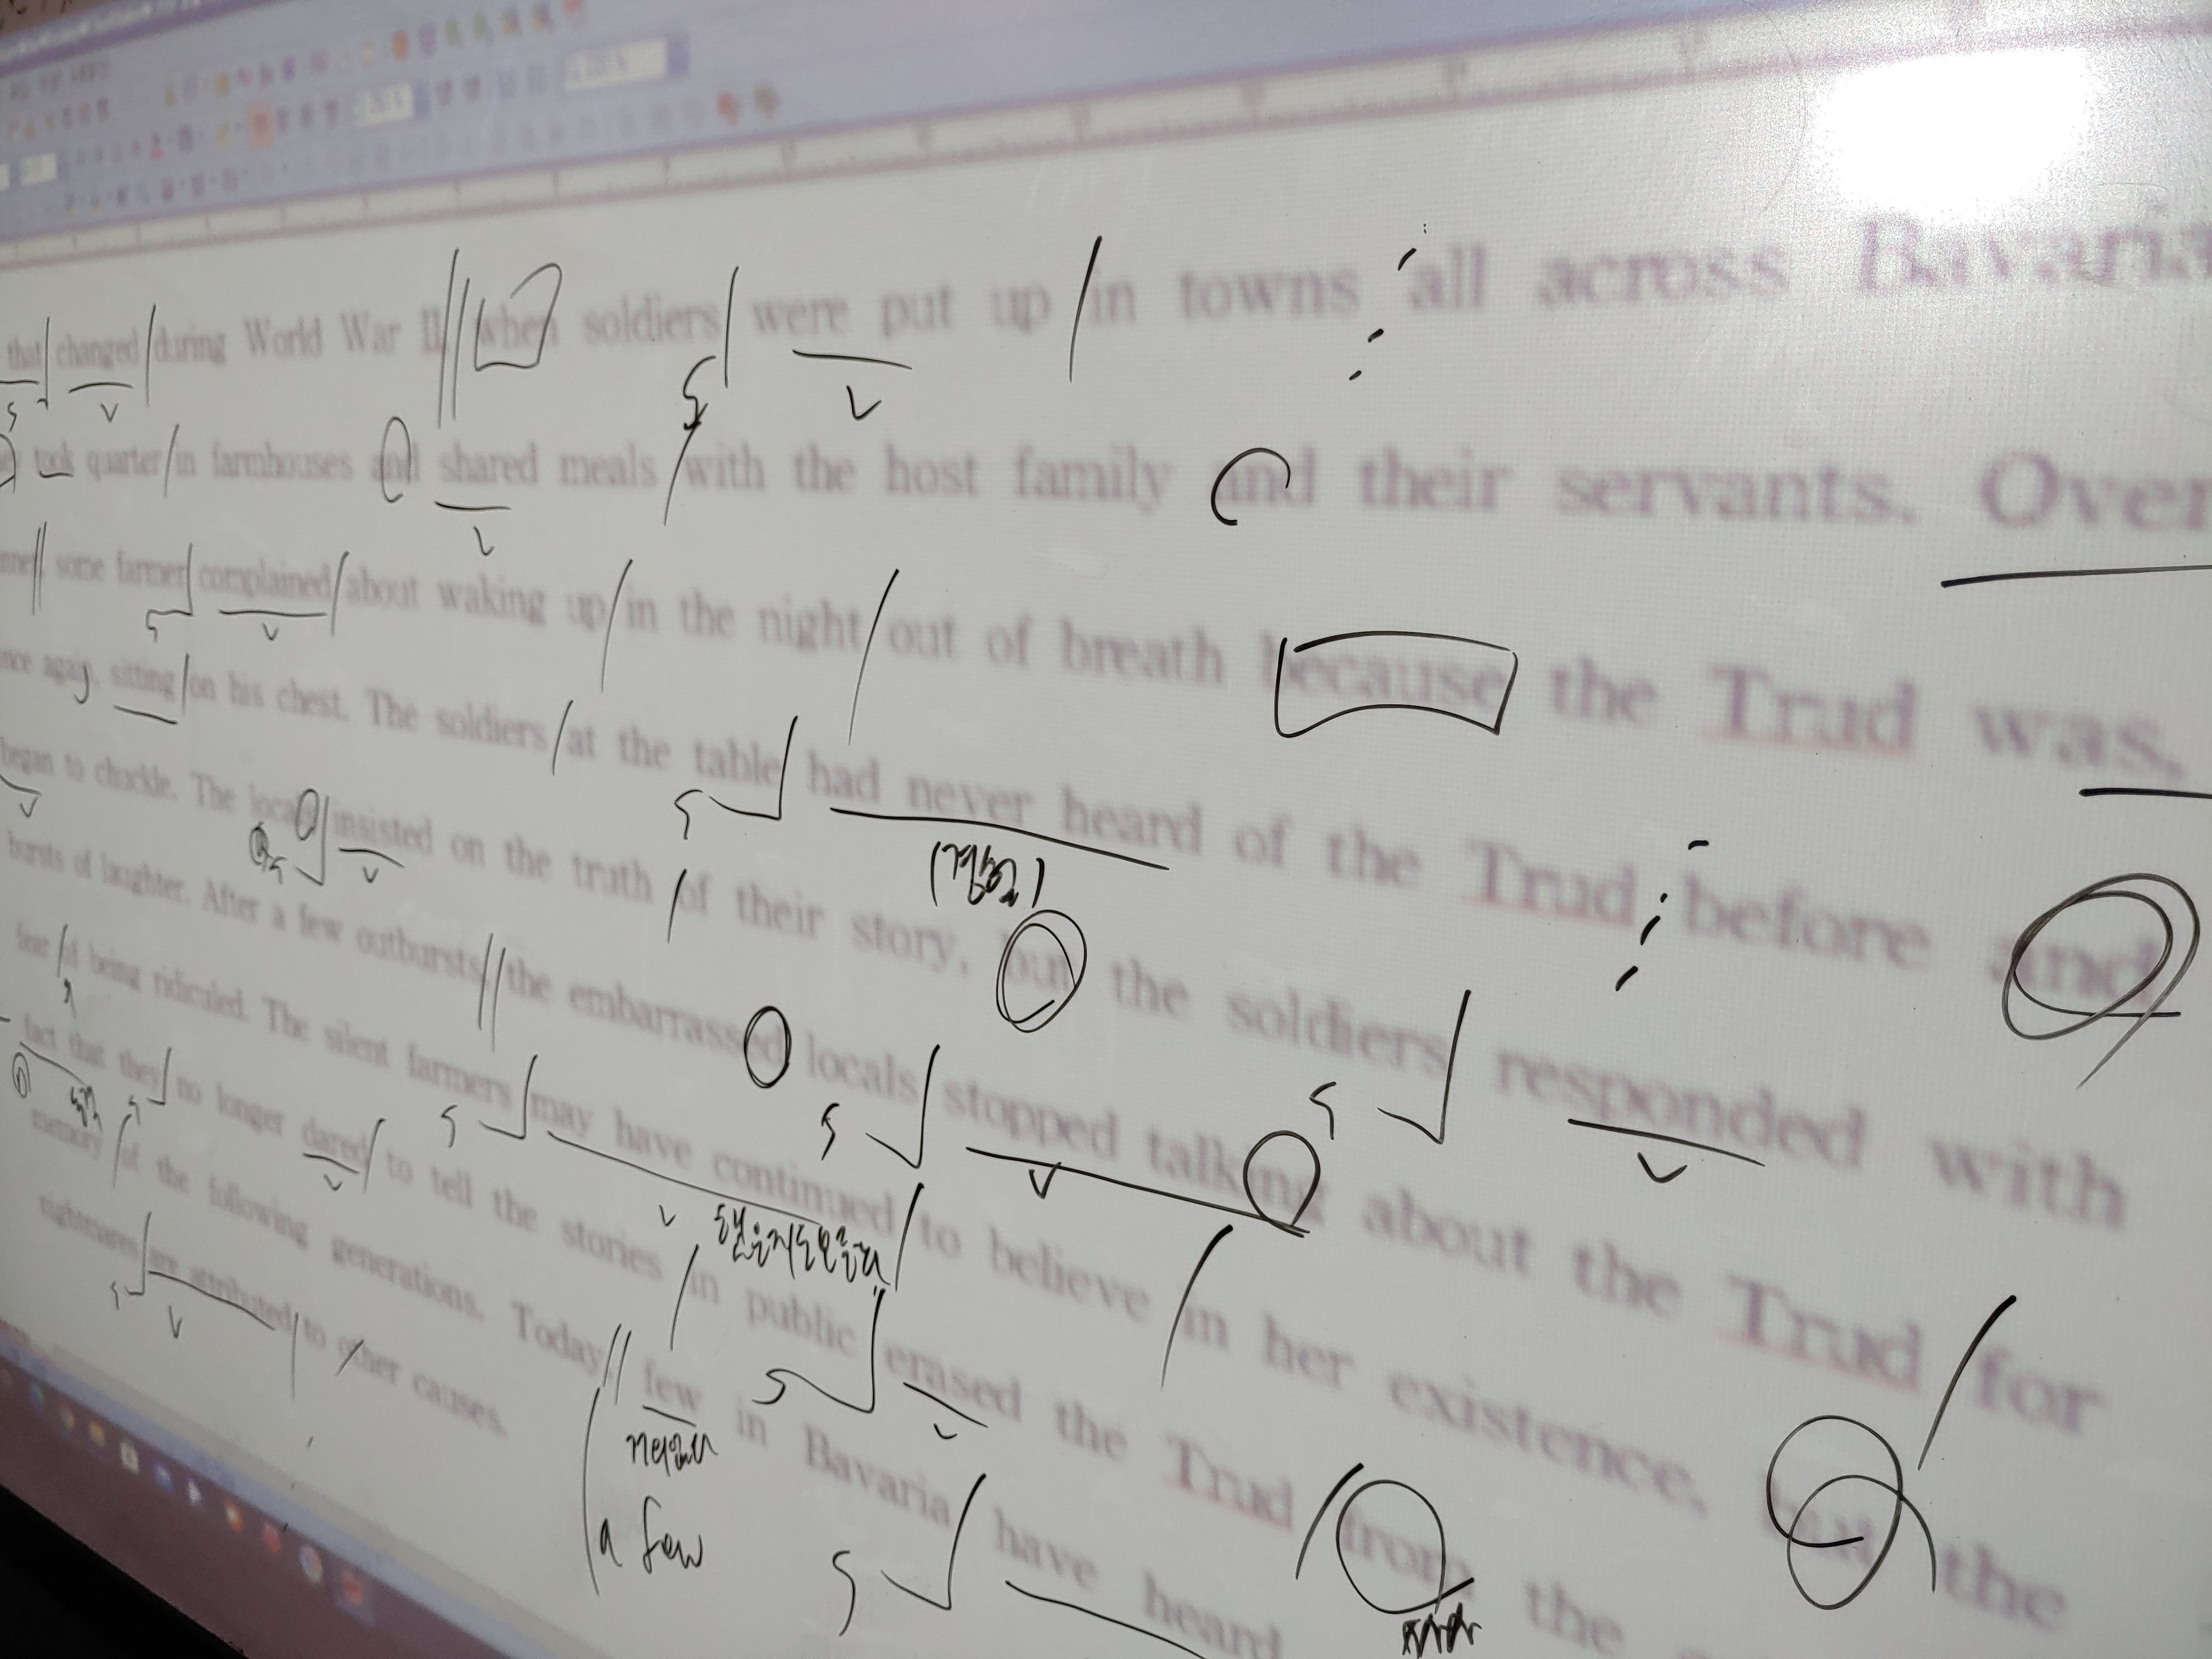 that changed during World War II, when soldiers were put up in towns all across Bavaria
took quarter in farmhouses and shared meals with the host family and their servants. Over
some farmer complained about waking up in the night out of breath because the Trud was,
again, sitting on his chest. The soldiers at the table had never heard of the Trud before and
began to chuckle. The locals insisted on the truth of their story, but the soldiers responded with
bursts of laughter. After a few outbursts, the embarrassed locals stopped talking about the Trud for
fear of being ridiculed. The silent farmers may have continued to believe in her existence, but the
fact that they no longer dared to tell the stories in public erased the Trud from the
memory of the following generations. Today, few in Bavaria have heard
nightmares are attributed to other causes.
S
V
S
V
V
S
V
S
(경험)
S
V
S
V
S
V
S
V
했을지도모른다
S
V
S
V
거의없다
a few
S
S
V